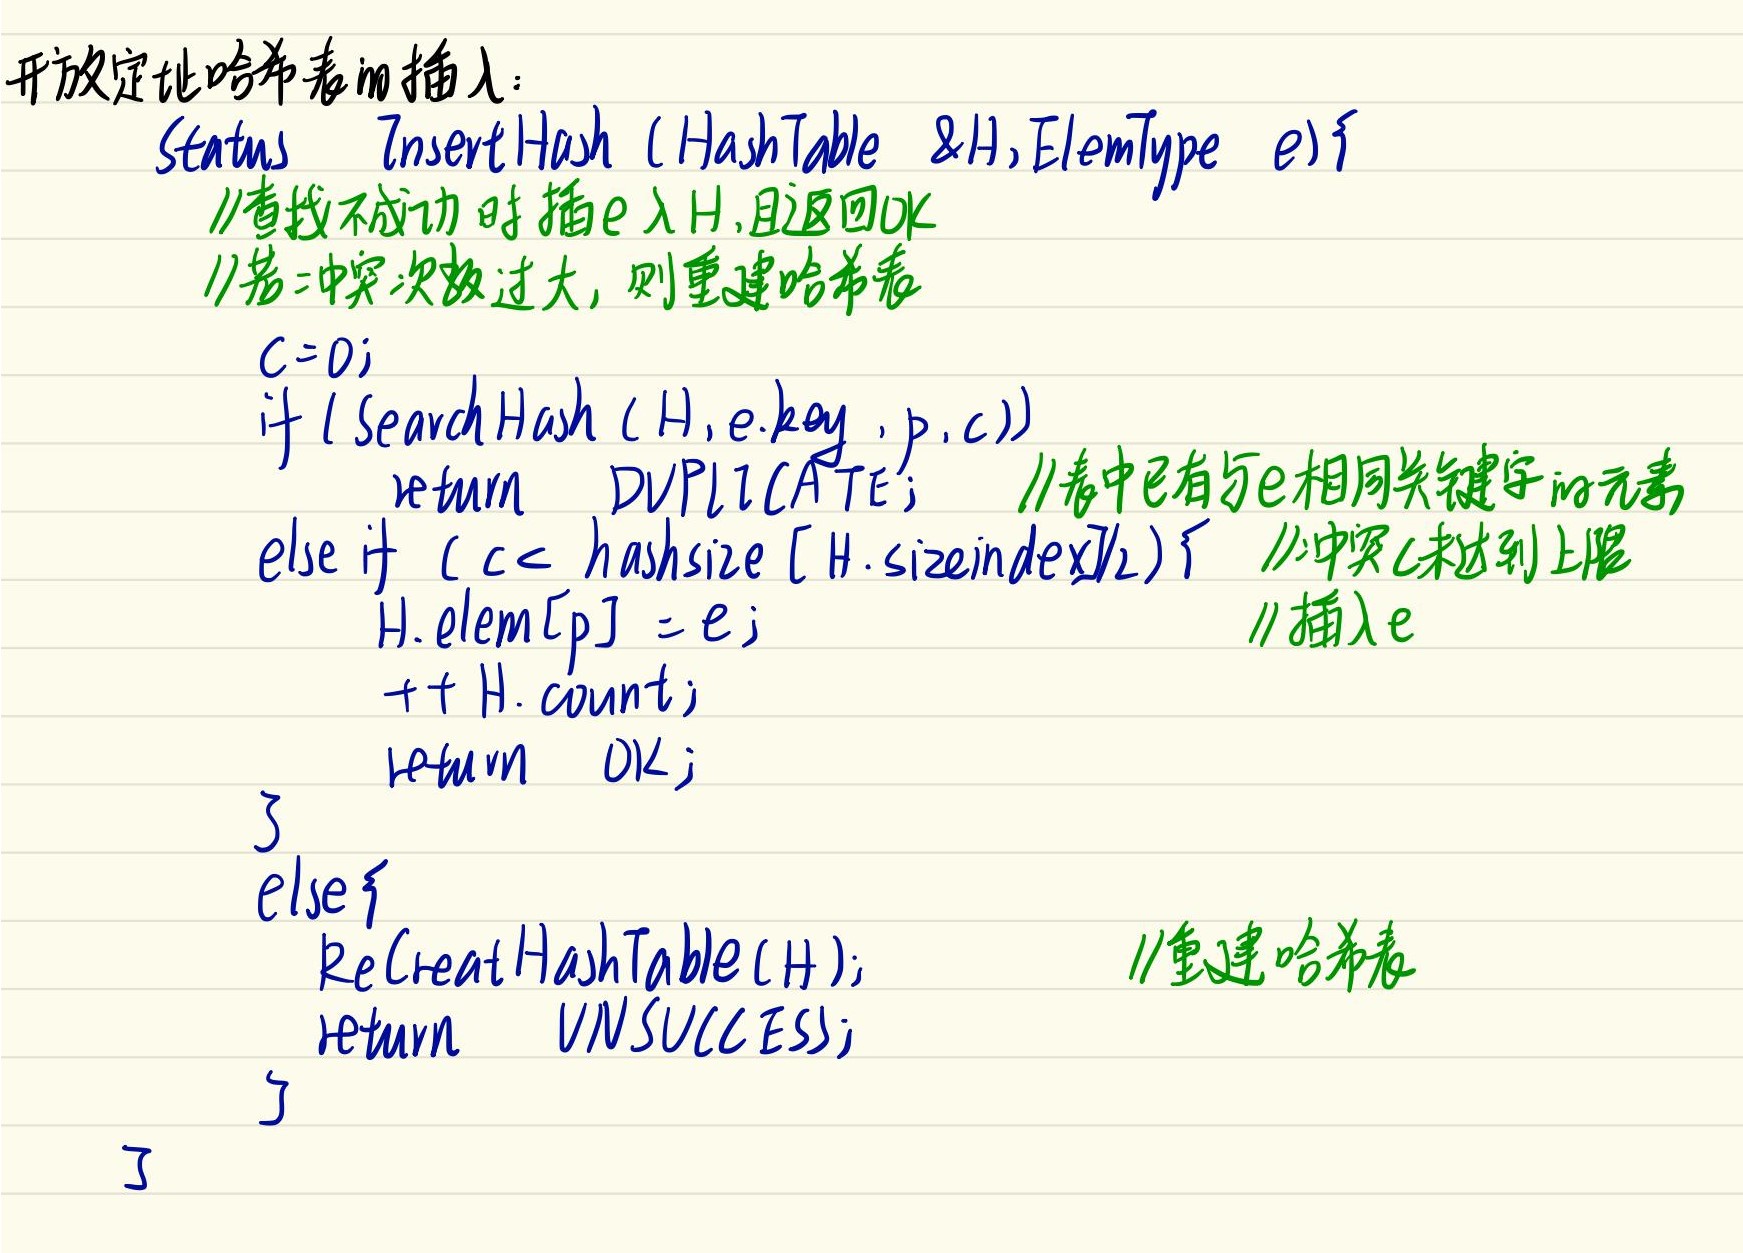 开放定址哈希表的插入:
Status InsertHash (HashTable &H, ElemType e){
//查找不成功时插e入H,且返回OK
//若冲突次数过大, 则重建哈希表
C=0;
if (SearchHash (H, e.key, p, c))
return DUPLICATE; //表中已有与e相同关键字的元素
else if (c< hashsize [H.sizeindex]/2){ //冲突c未达到上限
H.elem[p] = e; //插入e
++H.count;
return OK;
}
else{
ReCreatHashTable(H); //重建哈希表
return UNSUCCESS;
}
}